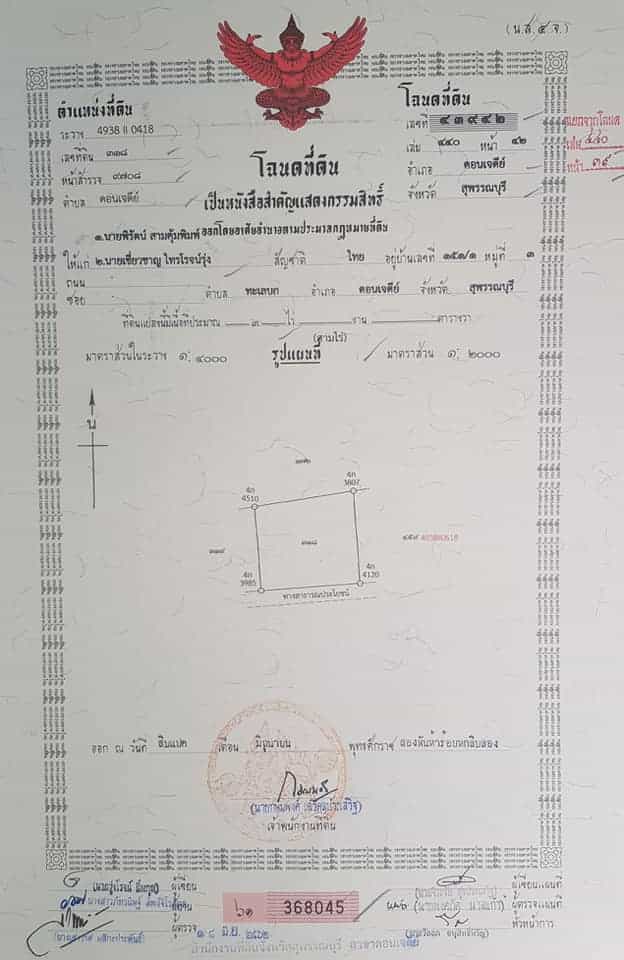 (น.ส.๔ จ.)
ตำแหน่งที่ดิน
ระวาง 4938 II 0418
เลขที่ดิน ๓๑๘
หน้าสำรวจ ๙๗๐๘
ตำบล ดอนเจดีย์
โฉนดที่ดิน
เลขที่ ๔๓๙๔๒
เล่ม ๔๔๐ หน้า ๔๒
อำเภอ ดอนเจดีย์
จังหวัด สุพรรณบุรี
เล่ม ๔๔๐
หน้า ๓๙
โฉนดที่ดิน
เป็นหนังสือสำคัญแสดงกรรมสิทธิ์
ออกโดยอาศัยอำนาจตามประมวลกฎหมายที่ดิน
๑.นายพิรัตน์ สามคุ้มพิมพ์
ให้แก่ ๒.นายเชี่ยวชาญ ไทรโรจน์รุ่ง สัญชาติ ไทย อยู่บ้านเลขที่ ๑๕๑/๑ หมู่ที่ ๓
ถนน
ซอย ตำบล ทะเลบก อำเภอ ดอนเจดีย์ จังหวัด สุพรรณบุรี
ที่ดินแปลงนี้มีเนื้อที่ประมาณ ๓ ไร่ งาน ตารางวา
(สามไร่)
มาตราส่วนในระวาง ๑: ๔๐๐๐ รูปแผนที่ มาตราส่วน ๑: ๒๐๐๐
น
4ก
3807
4ก
4510
๓๑๘
4ก
3985
4ก
4120
ทางสาธารณประโยชน์
ออก ณ วันที่ สิบแปด เดือน มิถุนายน พุทธศักราช สองพันห้าร้อยหกสิบสอง
เจ้าพนักงานที่ดิน
ผู้เขียน
ผู้ตรวจ
๖๑ 368045
๑๘ มิ.ย. ๒๕๖๒
ผู้เขียนแผนที่
ผู้ตรวจแผนที่
หัวหน้าการ
สำนักงานที่ดินจังหวัดสุพรรณบุรี สาขาดอนเจดีย์